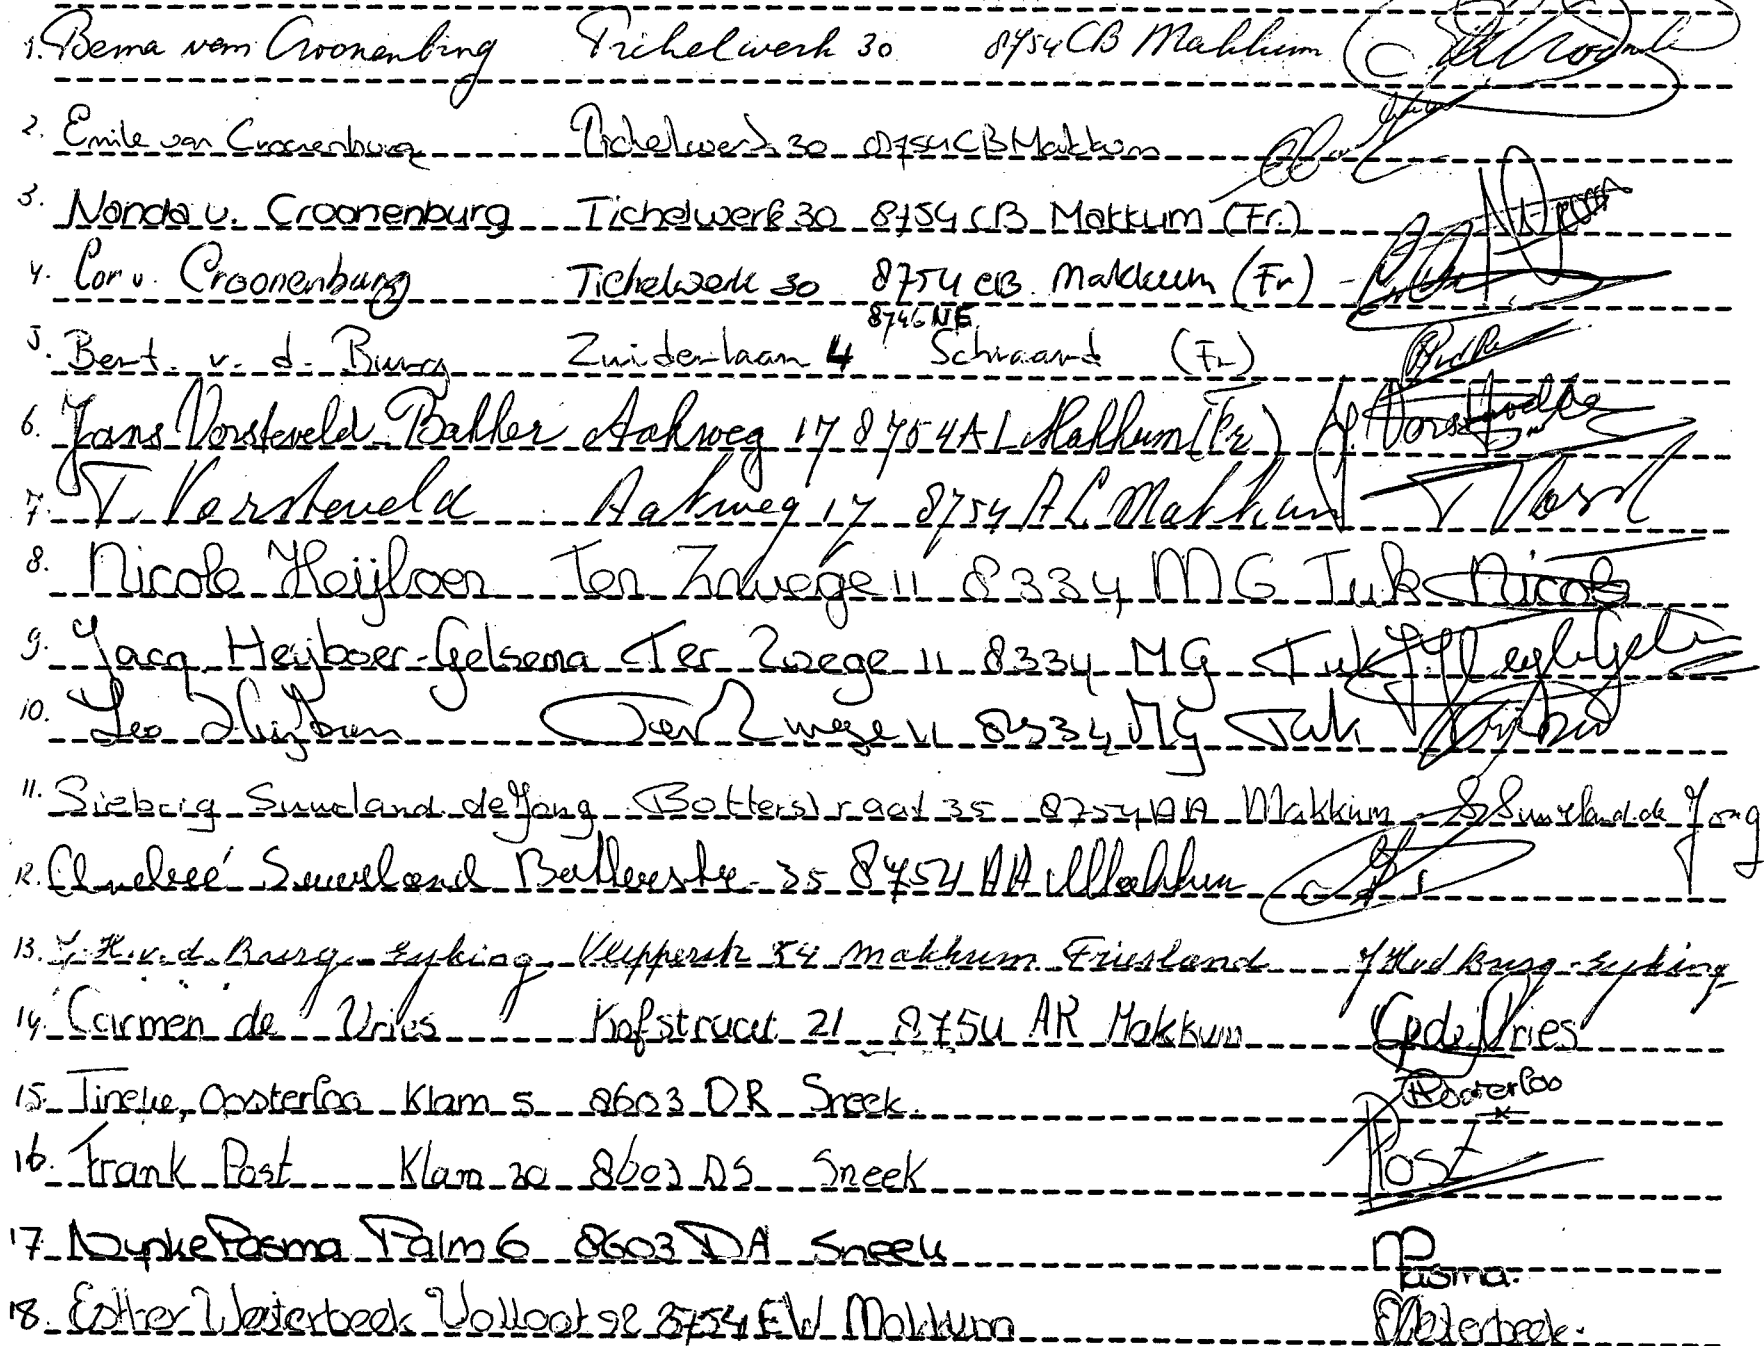 1. Bema van Croonenburg Tichelwerk 30 8754 CB Makkum
2. Emile van Croonenburg Tichelwerk 30 8754 CB Makkum
3. Nanda v. Croonenburg Tichelwerk 30 8754 CB Makkum (Fr.)
4. Cor v. Croonenburg Tichelwerk 30 8754 CB Makkum (Fr)
8746 NE
5. Bert. v. d. Burg Zuiderlaan 4 Schraard (Fr)
6. Jans Vorsteveld-Bakker Aakweg 17 8754 AL Makkum (Fr)
7. T. Vorsteveld Aakweg 17 8754 AL Makkum T Vorst
8. Nicole Heijboer Ter Zwege 11 8334 MG Tuk Nicole
9. Jacq. Heijboer-Gelsema Ter Zwege 11 8334 MG Tuk
10. Leo Heijboer Ter Zwege 11 8334 MG Tuk
11. Siebrig Suurland de Jong Botterstraat 35 8754 AA Makkum S. Suurland.de Jong
12. Andreé Suurland Botterstr. 35 8754 AA Makkum
13. J.H.v.d. Burg-Eyking Klipperstr 54 Makkum Friesland J H vd Burg-Eyking
14. Carmen de Vries Kofstraat 21 8754 AR Makkum C de Vries
15. Tineke Oosterloo Klam 5 8603 DR Sneek. TOosterloo
16. Frank Post Klam 20 8603 DS Sneek Post
17. Nynke Pasma Palm 6 8603 DA Sneek NPasma.
18. Esther Westerbeek Vallaat 92 8754 EW Makkum EWesterbeek.